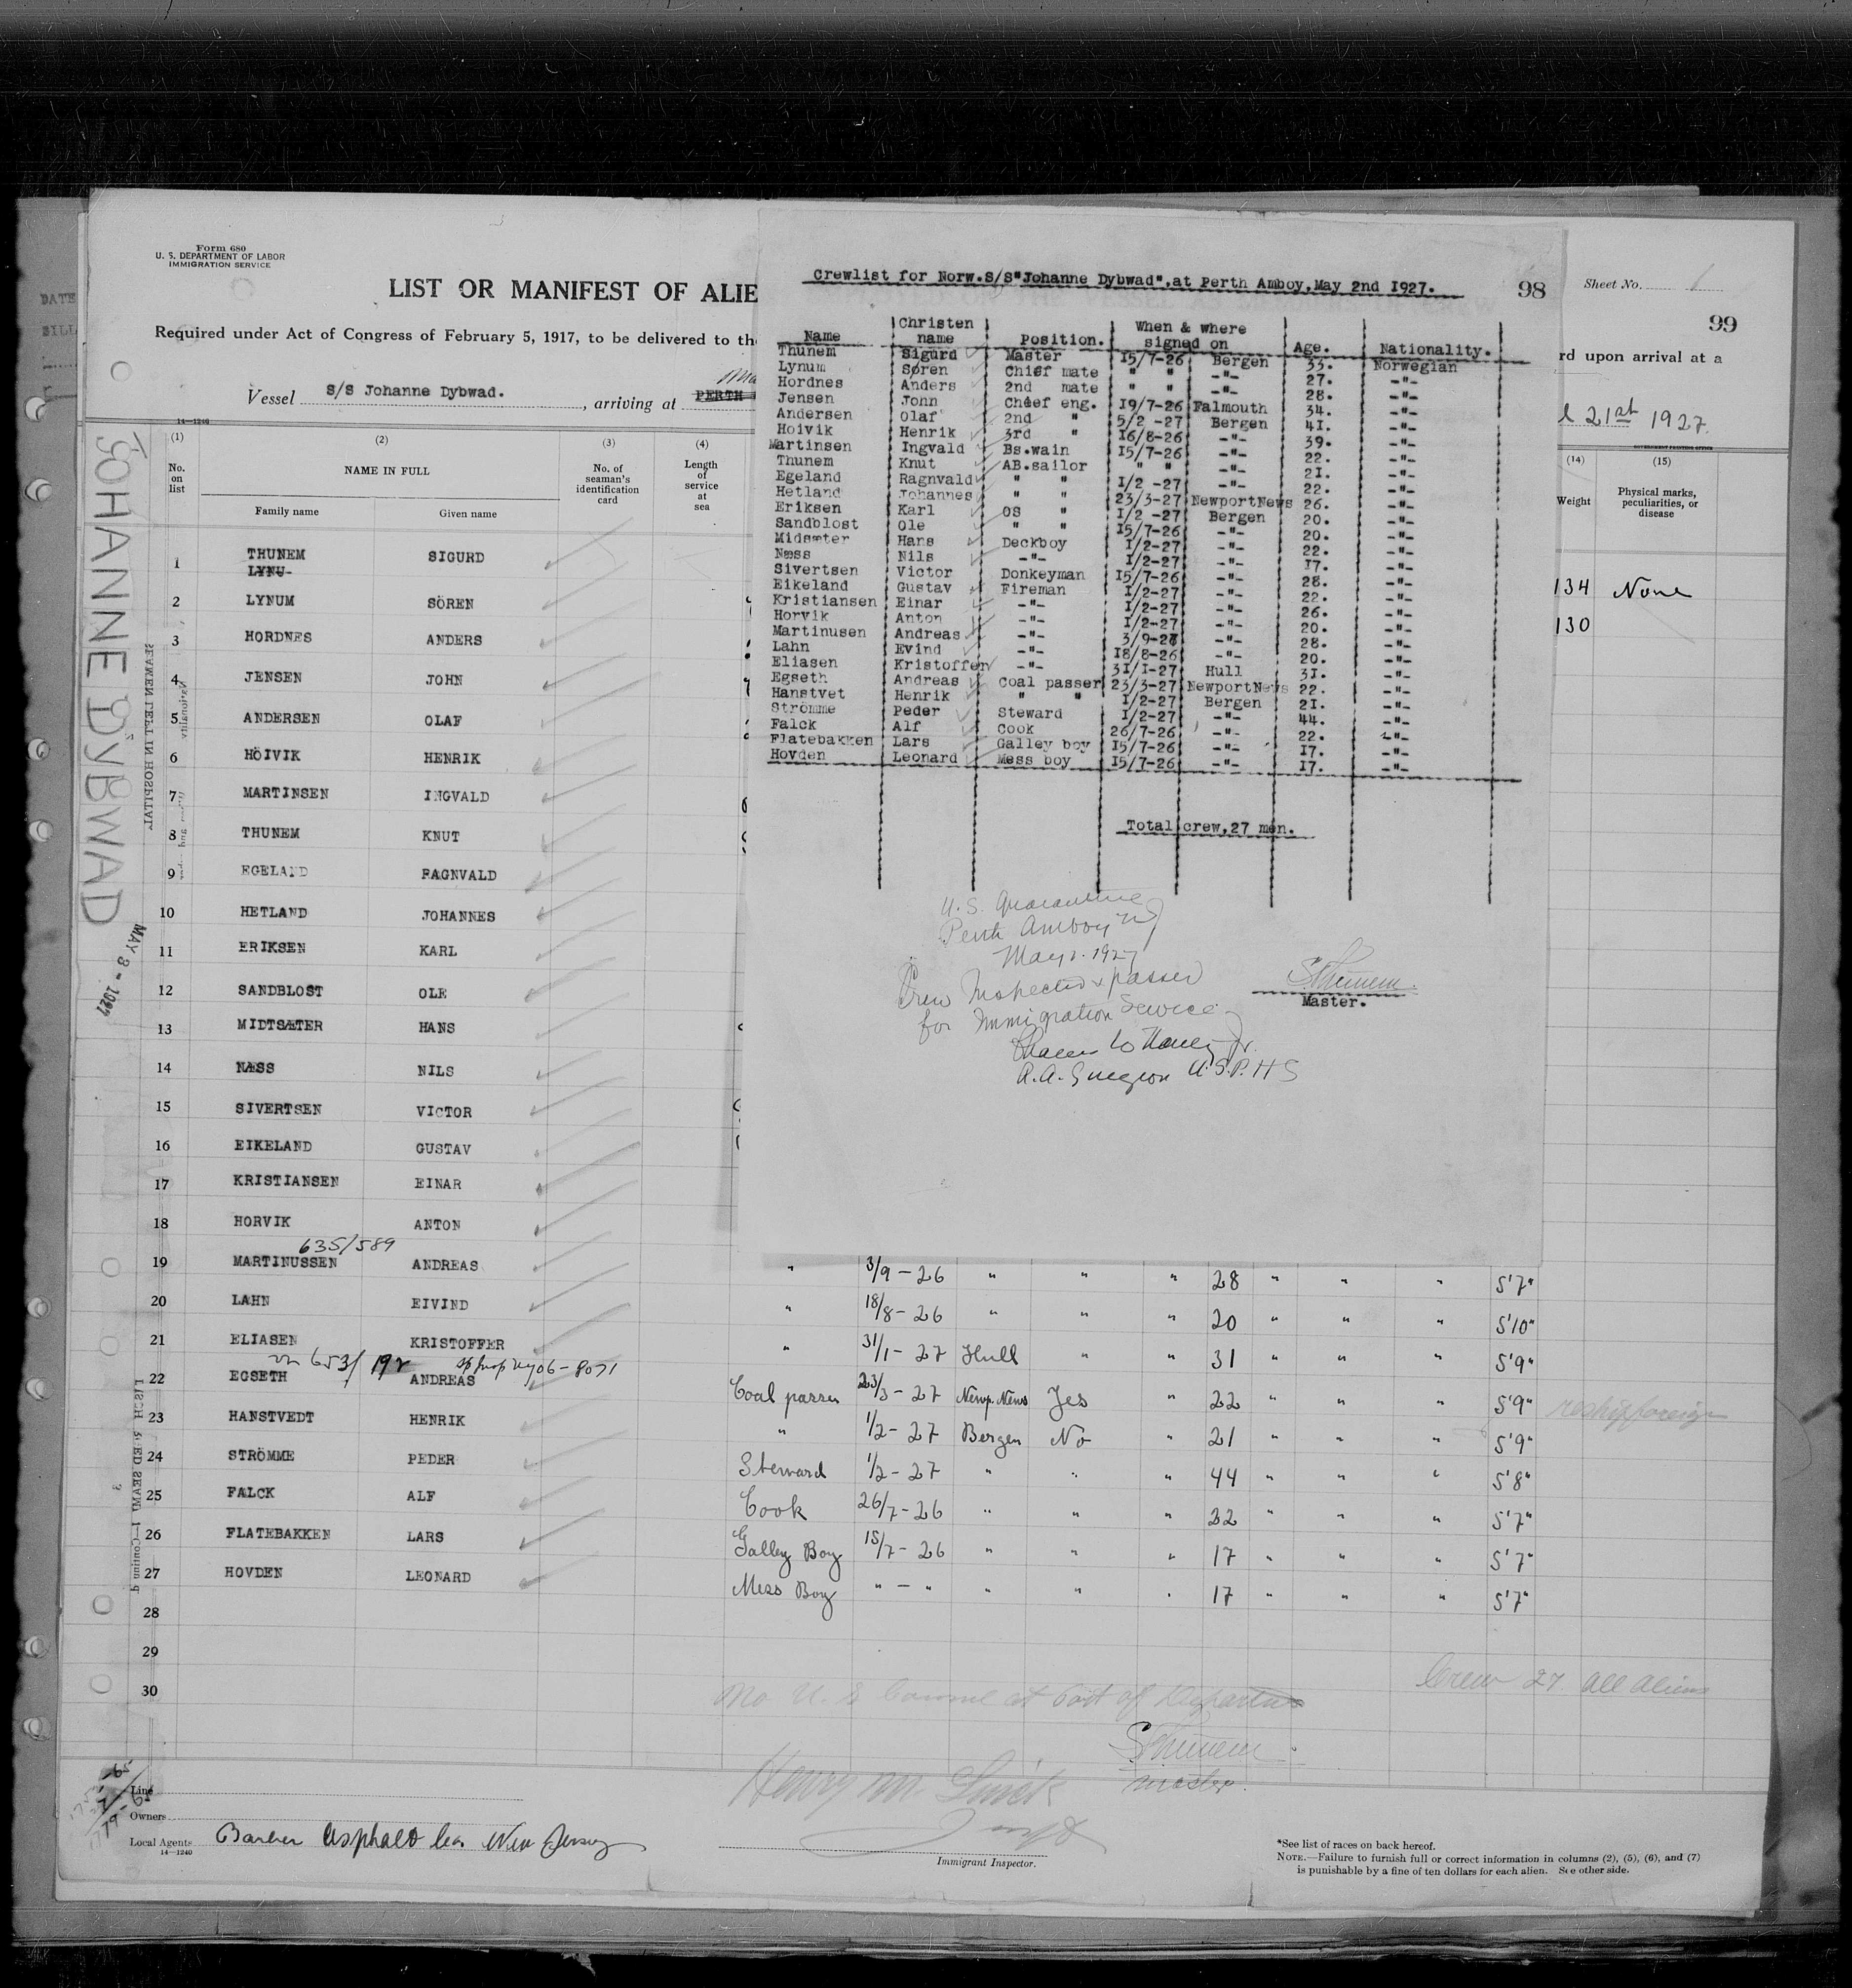 Form 680
U. S. DEPARTMENT OF LABOR
IMMIGRATION SERVICE
LIST OR MANIFEST OF ALIE
Required under Act of Congress of February 5, 1917, to be delivered to the
Vessel S/S Johanne Dybwad. , arriving at PERTH
14—1240
(1) (2) (3) (4)
No. on list NAME IN FULL No. of seaman's identification card Length of service at sea
Family name Given name
1 THUNEM SIGURD
LYNU-
2 LYNUM SÖREN
3 HORDNES ANDERS
4 JENSEN JOHN
5 ANDERSEN OLAF
6 HÖIVIK HENRIK
7 MARTINSEN INGVALD
8 THUNEM KNUT
9 EGELAND RAGNVALD
10 HETLAND JOHANNES
11 ERIKSEN KARL
12 SANDBLOST OLE
13 MIDTSÆTER HANS
14 NÆSS NILS
15 SIVERTSEN VICTOR
16 EIKELAND GUSTAV
17 KRISTIANSEN EINAR
18 HORVIK ANTON
635/589
19 MARTINUSSEN ANDREAS " 3/9-26 " " " 28 " " " 5'7"
20 LAHN EIVIND " 18/8-26 " " " 20 " " " 5'10"
21 ELIASEN KRISTOFFER " 31/1-27 Hull " " 31 " " " 5'9"
653/192
22 EGSETH ANDREAS Coal passer 23/3-27 Newp. News Yes " 22 " " " 5'9" reship foreign
23 HANSTVEDT HENRIK " 1/2-27 Bergen No " 21 " " " 5'9"
24 STRÖMME PEDER Steward 1/2-27 " " " 44 " " " 5'8"
25 FALCK ALF Cook 26/7-26 " " " 22 " " " 5'7"
26 FLATEBAKKEN LARS Galley Boy 15/7-26 " " " 17 " " " 5'7"
27 HOVDEN LEONARD Mess Boy " - " " " " 17 " " " 5'7"
28
29
30
Crew 27 all aliens
No U. S. Consul at Port of Departure
SThunem
master.
Line
Owners
Local Agents Barber Asphalt Co. New Jersey
14—1240
Immigrant Inspector.
*See list of races on back hereof.
NOTE.—Failure to furnish full or correct information in columns (2), (5), (6), and (7)
is punishable by a fine of ten dollars for each alien. See other side.
JOHANNE DYBWAD
MAY 3 - 1927
SEAMEN LEFT IN HOSPITAL
Crewlist for Norw.S/S"Johanne Dybwad",at Perth Amboy,May 2nd 1927.
98
Name Christen name Position. When & where signed on Age. Nationality.
Thunem Sigurd Master 15/7-26 Bergen 33. Norwegian
Lynum Søren Chief mate " " -"- 27. -"-
Hordnes Anders 2nd mate " " -"- 28. -"-
Jensen John Chief eng. 19/7-26 Falmouth 34. -"-
Andersen Olaf 2nd " 5/2 -27 Bergen 41. -"-
Hoivik Henrik 3rd " 16/8-26 -"- 39. -"-
Martinsen Ingvald Bs.wain 15/7-26 -"- 22. -"-
Thunem Knut AB.sailor " " -"- 21. -"-
Egeland Ragnvald " " 1/2 -27 -"- 22. -"-
Hetland Johannes " " 23/3-27 NewportNews 26. -"-
Eriksen Karl OS " 1/2 -27 Bergen 20. -"-
Sandblost Ole " " 15/7-26 -"- 20. -"-
Midsæter Hans Deckboy 1/2-27 -"- 22. -"-
Næss Nils -"- 1/2-27 -"- 17. -"-
Sivertsen Victor Donkeyman 15/7-26 -"- 28. -"-
Eikeland Gustav Fireman 1/2-27 -"- 22. -"-
Kristiansen Einar -"- 1/2-27 -"- 26. -"-
Horvik Anton -"- 1/2-27 -"- 20. -"-
Martinusen Andreas -"- 3/9-26 -"- 28. -"-
Lahn Evind -"- 18/8-26 -"- 20. -"-
Eliasen Kristoffer -"- 31/1-27 Hull 31. -"-
Egseth Andreas Coal passer 23/3-27 NewportNews 22. -"-
Hanstvet Henrik " " 1/2-27 Bergen 21. -"-
Strömme Peder Steward 1/2-27 -"- 44. -"-
Falck Alf Cook 26/7-26 -"- 22. -"-
Flatebakken Lars Galley boy 15/7-26 -"- 17. -"-
Hovden Leonard Mess boy 15/7-26 -"- 17. -"-
Total crew,27 men.
U.S. Quarantine
Perth Amboy NJ
May 2. 1927
Crew Inspected & passed
for Immigration Service
A.A. Surgeon U.S.P.H.S
SThunem.
Master.
Sheet No. 1
99
rd upon arrival at a
l 21st 1927.
GOVERNMENT PRINTING OFFICE
(14) (15)
Weight Physical marks, peculiarities, or disease
134 None
130